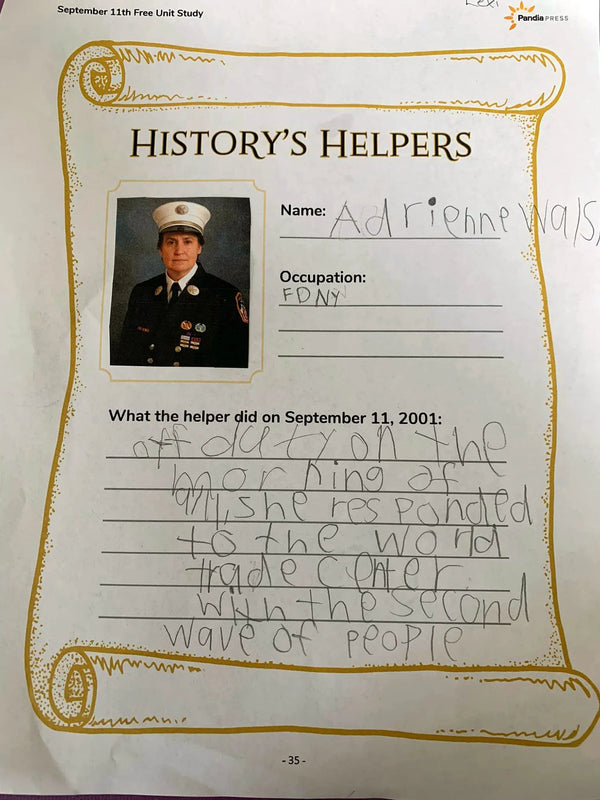 September 11th Free Unit Study
Lexi
Pandia PRESS
HISTORY'S HELPERS
Name: Adrienne Wals
Occupation:
FDNY
What the helper did on September 11, 2001:
off duty on the
morning of
9/11, she responded
to the world
trade center
with the second
wave of people
- 35 -